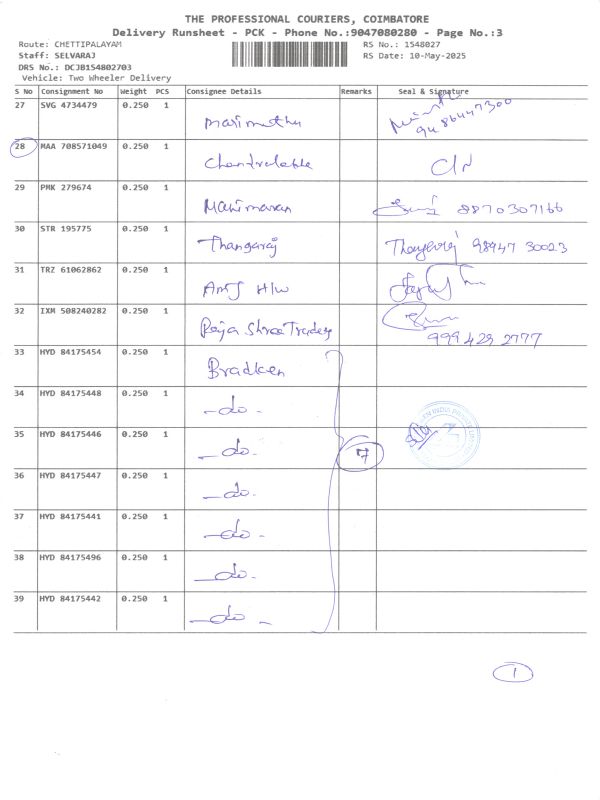 THE PROFESSIONAL COURIERS, COIMBATORE
Delivery Runsheet - PCK - Phone No.:9047080280 - Page No.:3
Route: CHETTIPALAYAM RS No.: 1548027
Staff: SELVARAJ RS Date: 10-May-2025
DRS No.: DCJB154802703
Vehicle: Two Wheeler Delivery
S No Consignment No Weight PCS Consignee Details Remarks Seal & Signature
27 SVG 4734479 0.250 1 Marimuthu 9486447300
28 MAA 708571049 0.250 1 Chandralekha
29 PMK 279674 0.250 1 Manimaran 8870307166
30 STR 195775 0.250 1 Thangaraj Thangaraj 98947 30023
31 TRZ 61062862 0.250 1 AMJ H/W
32 IXM 508240282 0.250 1 Raja Shree Traders 999 429 2777
33 HYD 84175454 0.250 1 Bradken
34 HYD 84175448 0.250 1 -do-
35 HYD 84175446 0.250 1 -do- 7
36 HYD 84175447 0.250 1 -do-
37 HYD 84175441 0.250 1 -do-
38 HYD 84175496 0.250 1 -do-
39 HYD 84175442 0.250 1 -do-
1